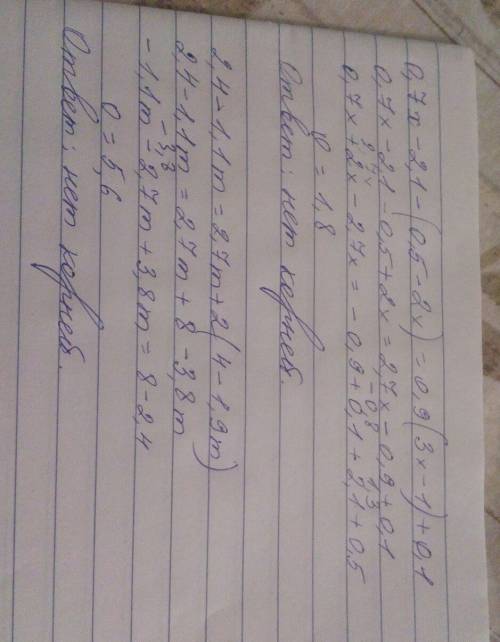 0,7x - 2,1 - (0,5 - 2x) = 0,9(3x - 1) + 0,1
0,7x - 2,1 - 0,5 + 2x = 2,7x - 0,9 + 0,1
2,7x -0,8 1,3
0,7x + 2x - 2,7x = - 0,9 + 0,1 + 2,1 + 0,5
0 = 1,8
Ответ: нет корней.
2,4 - 1,1m = 2,7m + 2(4 - 1,9m)
2,4 - 1,1m = 2,7m + 8 - 3,8m
-3,8
- 1,1m - 2,7m + 3,8m = 8 - 2,4
0 = 5,6
Ответ: нет корней.